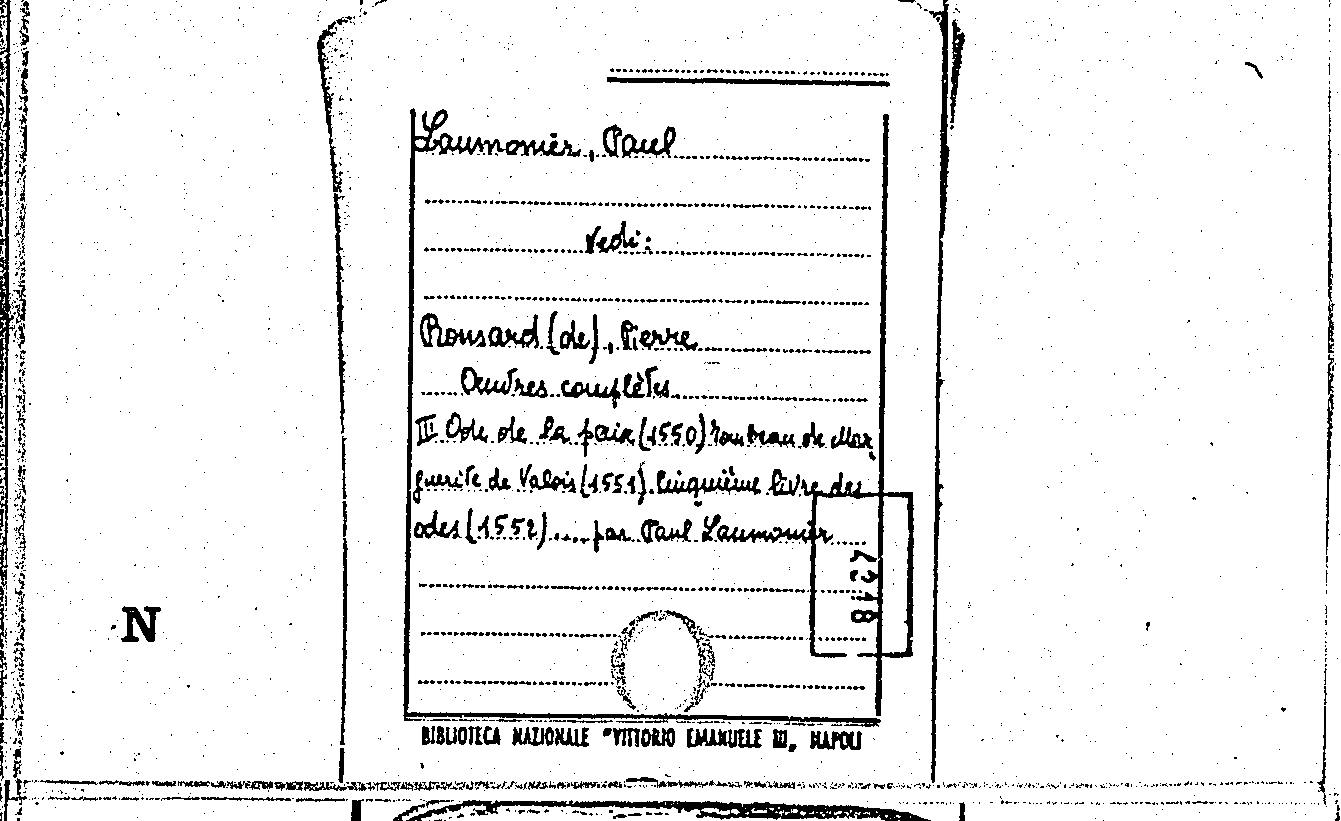 Laumonier, Paul
Vedi:
Ronsard (de), Pierre
Oeuvres complètes
III Ode de la paix (1550) Tombeau de Mar
guerite de Valois (1551). Cinquième livre des
odes (1552).... par Paul Laumonier
4218
N
BIBLIOTECA NAZIONALE "VITTORIO EMANUELE III„ NAPOLI